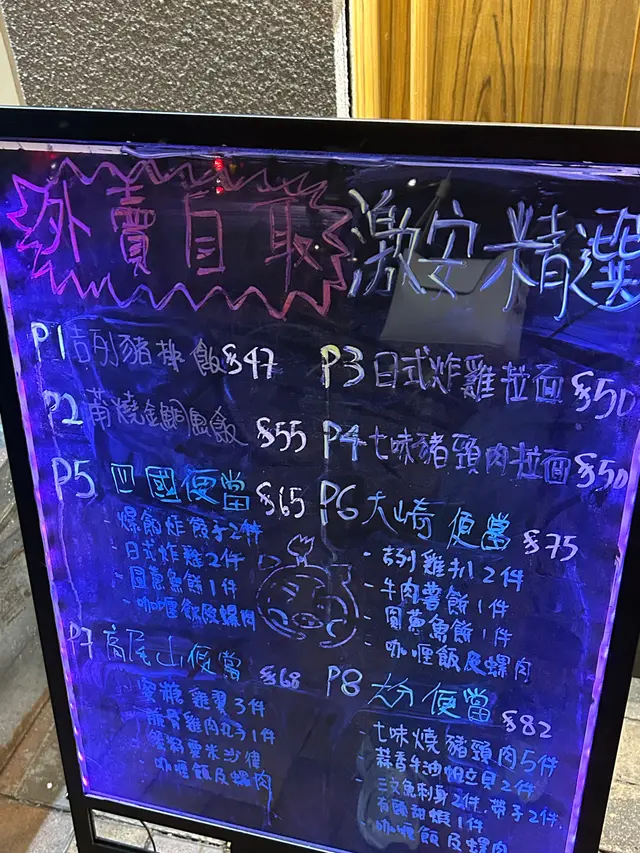 外賣自取
激安精選
P1 吉列豬排飯 $47
P2 蒲燒金鯛魚飯 $55
P3 日式炸雞拉面 $50
P4 七味豬頸肉拉面 $50
P5 四國便當 $65
- 爆餡炸餃子2件
- 日式炸雞2件
- 圓蔥魚餅1件
- 咖喱飯及螺肉
P6 大崎便當 $75
- 吉列雞扒2件
- 牛肉薯餅1件
- 圓蔥魚餅1件
- 咖喱飯及螺肉
P7 高尾山便當 $68
- 蜜糖雞翼3件
- 軟骨雞肉丸子1件
- 粟米沙律
- 咖喱飯及螺肉
P8 大分便當 $82
- 七味燒豬頸肉5件
- 蒜香牛油帆立貝2件
- 三文魚刺身2件,帶子2件,
有頭甜蝦1件
- 咖喱飯及螺肉